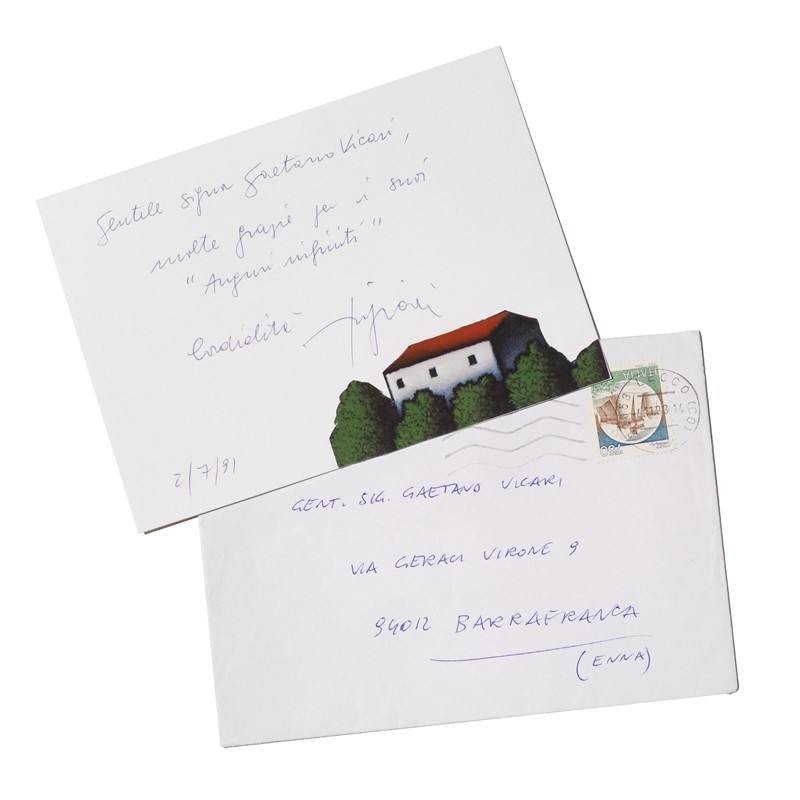 Gentile signor Gaetano Vicari,
molte grazie per i suoi
"Auguri infiniti"
Cordialità
2/7/91
ITALIA
750
LECCO (CO)
GENT. SIG. GAETANO VICARI
VIA GERACI VIRONE 9
94012 BARRAFRANCA
(ENNA)